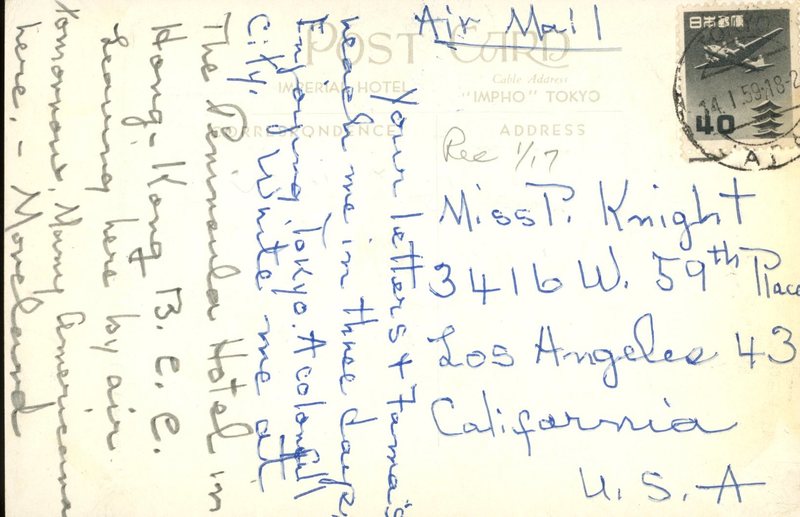 Air Mail
日本郵便
14.1.59.18-2
40
POST CARD
IMPERIAL HOTEL
Cable Address
"IMPHO" TOKYO
CORRESPONDENCE
ADDRESS
Rec 1/17
Miss P. Knight
3416 W. 59th Place
Los Angeles 43
California
U. S. A
Your letters &
reach me in three days,
Enjoying Tokyo. A colorfull
City, Write me at
The Peninsula Hotel in
Hong-Kong B. C. C.
Leaving here by air
tomorrow, Many Americans
here, - Moreland